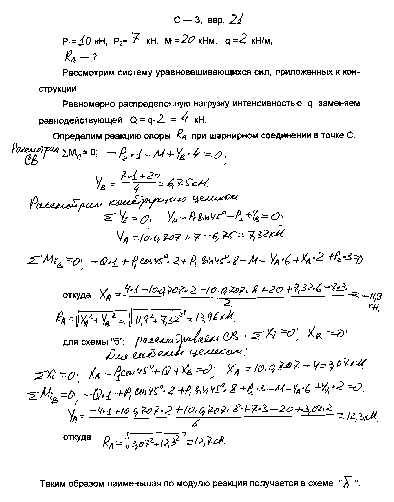 С — 3, вар. 21
P₁=10 кН, P₂= 7 кН. M=20 кНм. q=2 кН/м,
R_A — ?
Рассмотрим систему уравновешивающихся сил, приложенных к кон-
струкции
Равномерно распределенную нагрузку интенсивностью q заменяем
равнодействующей Q=q·2 = 4 кН.
Определим реакцию опоры R_A при шарнирном соединении в точке С.
Рассмотрим СВ ΣM_C=0; -P₂·1-M+Y_B·4=0;
Y_B = (7·1+20)/4 = 6,75 кН.
Рассмотрим конструкцию целиком
ΣY_i=0; Y_A-P₁sin45°-P₂+Y_B=0;
Y_A=10·0,707+7-6,75=7,32 кН
ΣM_B=0; -Q·1+P₁cos45°·2+P₁sin45°·8-M-Y_A·6+X_A·2+P₂·3=0
откуда X_A = (4·1-10·0,707·2-10·0,707·8+20+7,32·6-7·3)/2 = -11,9 кН.
R_A=√(X_A²+Y_A²)=√(11,9²+7,32²)=13,96 кН.
для схемы "б": рассматриваем СВ - ΣX_i=0; X_B=0.
Для системы целиком:
ΣX_i=0; X_A-P₁cos45°+Q+X_B=0; X_A=10·0,707-4=3,07 кН
ΣM_B=0; -Q·1+P₁cos45°·2+P₁sin45°·8+P₂·3-M-Y_A·6+X_A·2=0.
Y_A= (-4·1+10·0,707·2+10·0,707·8+7·3-20+3,07·2)/6 =12,3 кН.
откуда R_A=√(3,07²+12,3²)=12,7 кН.
Таким образом наименьшая по модулю реакция получается в схеме "б".